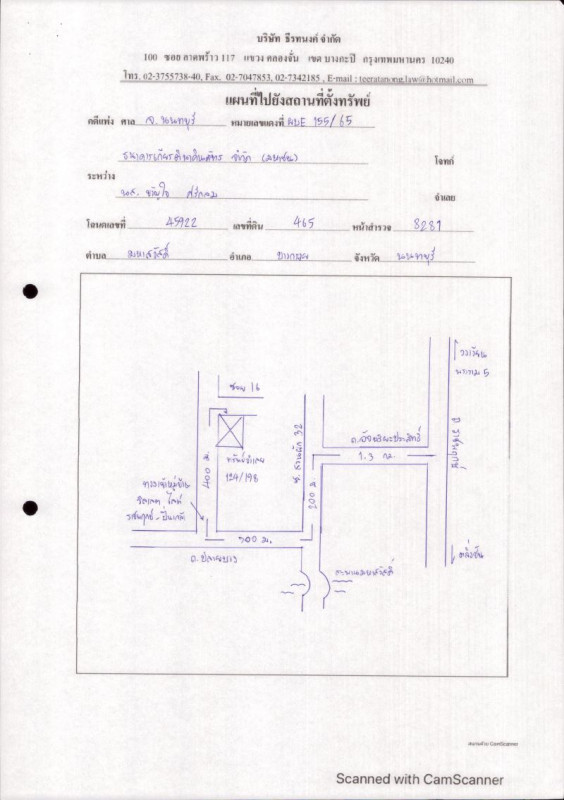 บริษัท ธีรทนงค์ จำกัด
100 ซอย ลาดพร้าว 117 แขวง คลองจั่น เขต บางกะปิ กรุงเทพมหานคร 10240
โทร. 02-3755738-40, Fax. 02-7047853, 02-7342185 , E-mail : teeratanong.law@hotmail.com
แผนที่ไปยังสถานที่ตั้งทรัพย์
คดีแพ่ง ศาล จ.นนทบุรี หมายเลขแดงที่ ผบE 155/65
ธนาคารเกียรตินาคินภัทร จำกัด (มหาชน) โจทก์
ระหว่าง
น.ส. ขวัญใจ จำเลย
โฉนดเลขที่ 45922 เลขที่ดิน 465 หน้าสำรวจ 8281
ตำบล มหาสวัสดิ์ อำเภอ บางกรวย จังหวัด นนทบุรี
วงเวียน
พระราม 5
ซอย 16
ถ.ราชพฤกษ์
ซ. สวนผัก 32
1.3 กม.
ทรัพย์จำเลย
124/198
400 ม.
200 ม.
ทางเข้าหมู่บ้าน
ราชพฤกษ์ - ปิ่นเกล้า
900 ม.
ถ. ปลายบาง
สะพานมหาสวัสดิ์
ตลิ่งชัน
สแกนด้วย CamScanner
Scanned with CamScanner